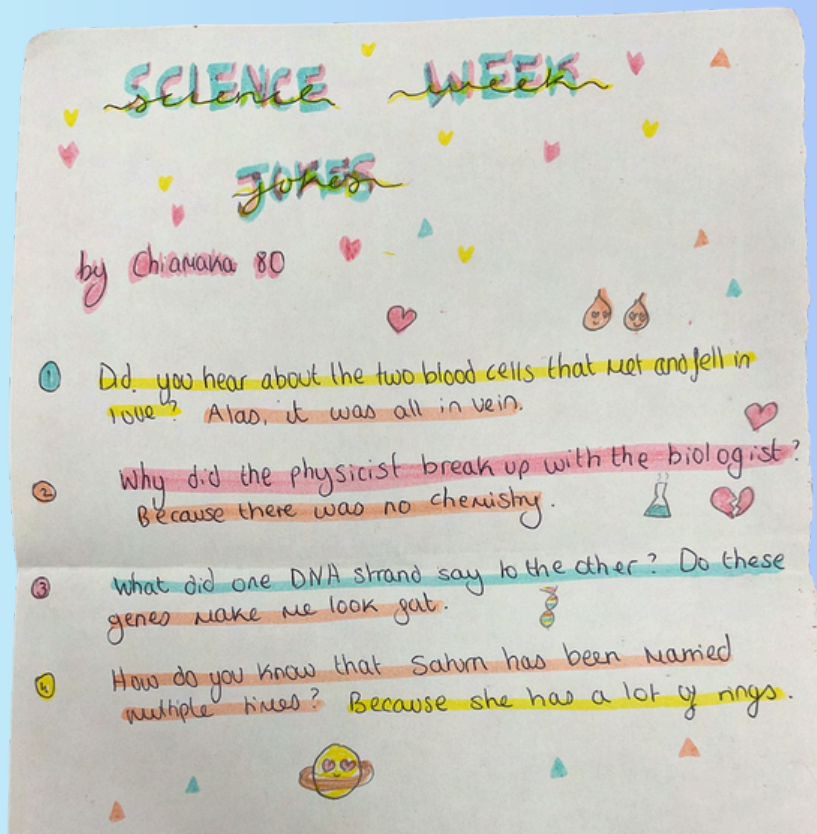 SCIENCE WEEK
science week
JOKES
jokes
by Chiamaka 80
1 Did you hear about the two blood cells that met and fell in
love? Alas, it was all in vein.
2 Why did the physicist break up with the biologist?
Because there was no chemistry.
3 What did one DNA strand say to the other? Do these
genes make me look fat.
4 How do you know that Saturn has been married
multiple times? Because she has a lot of rings.